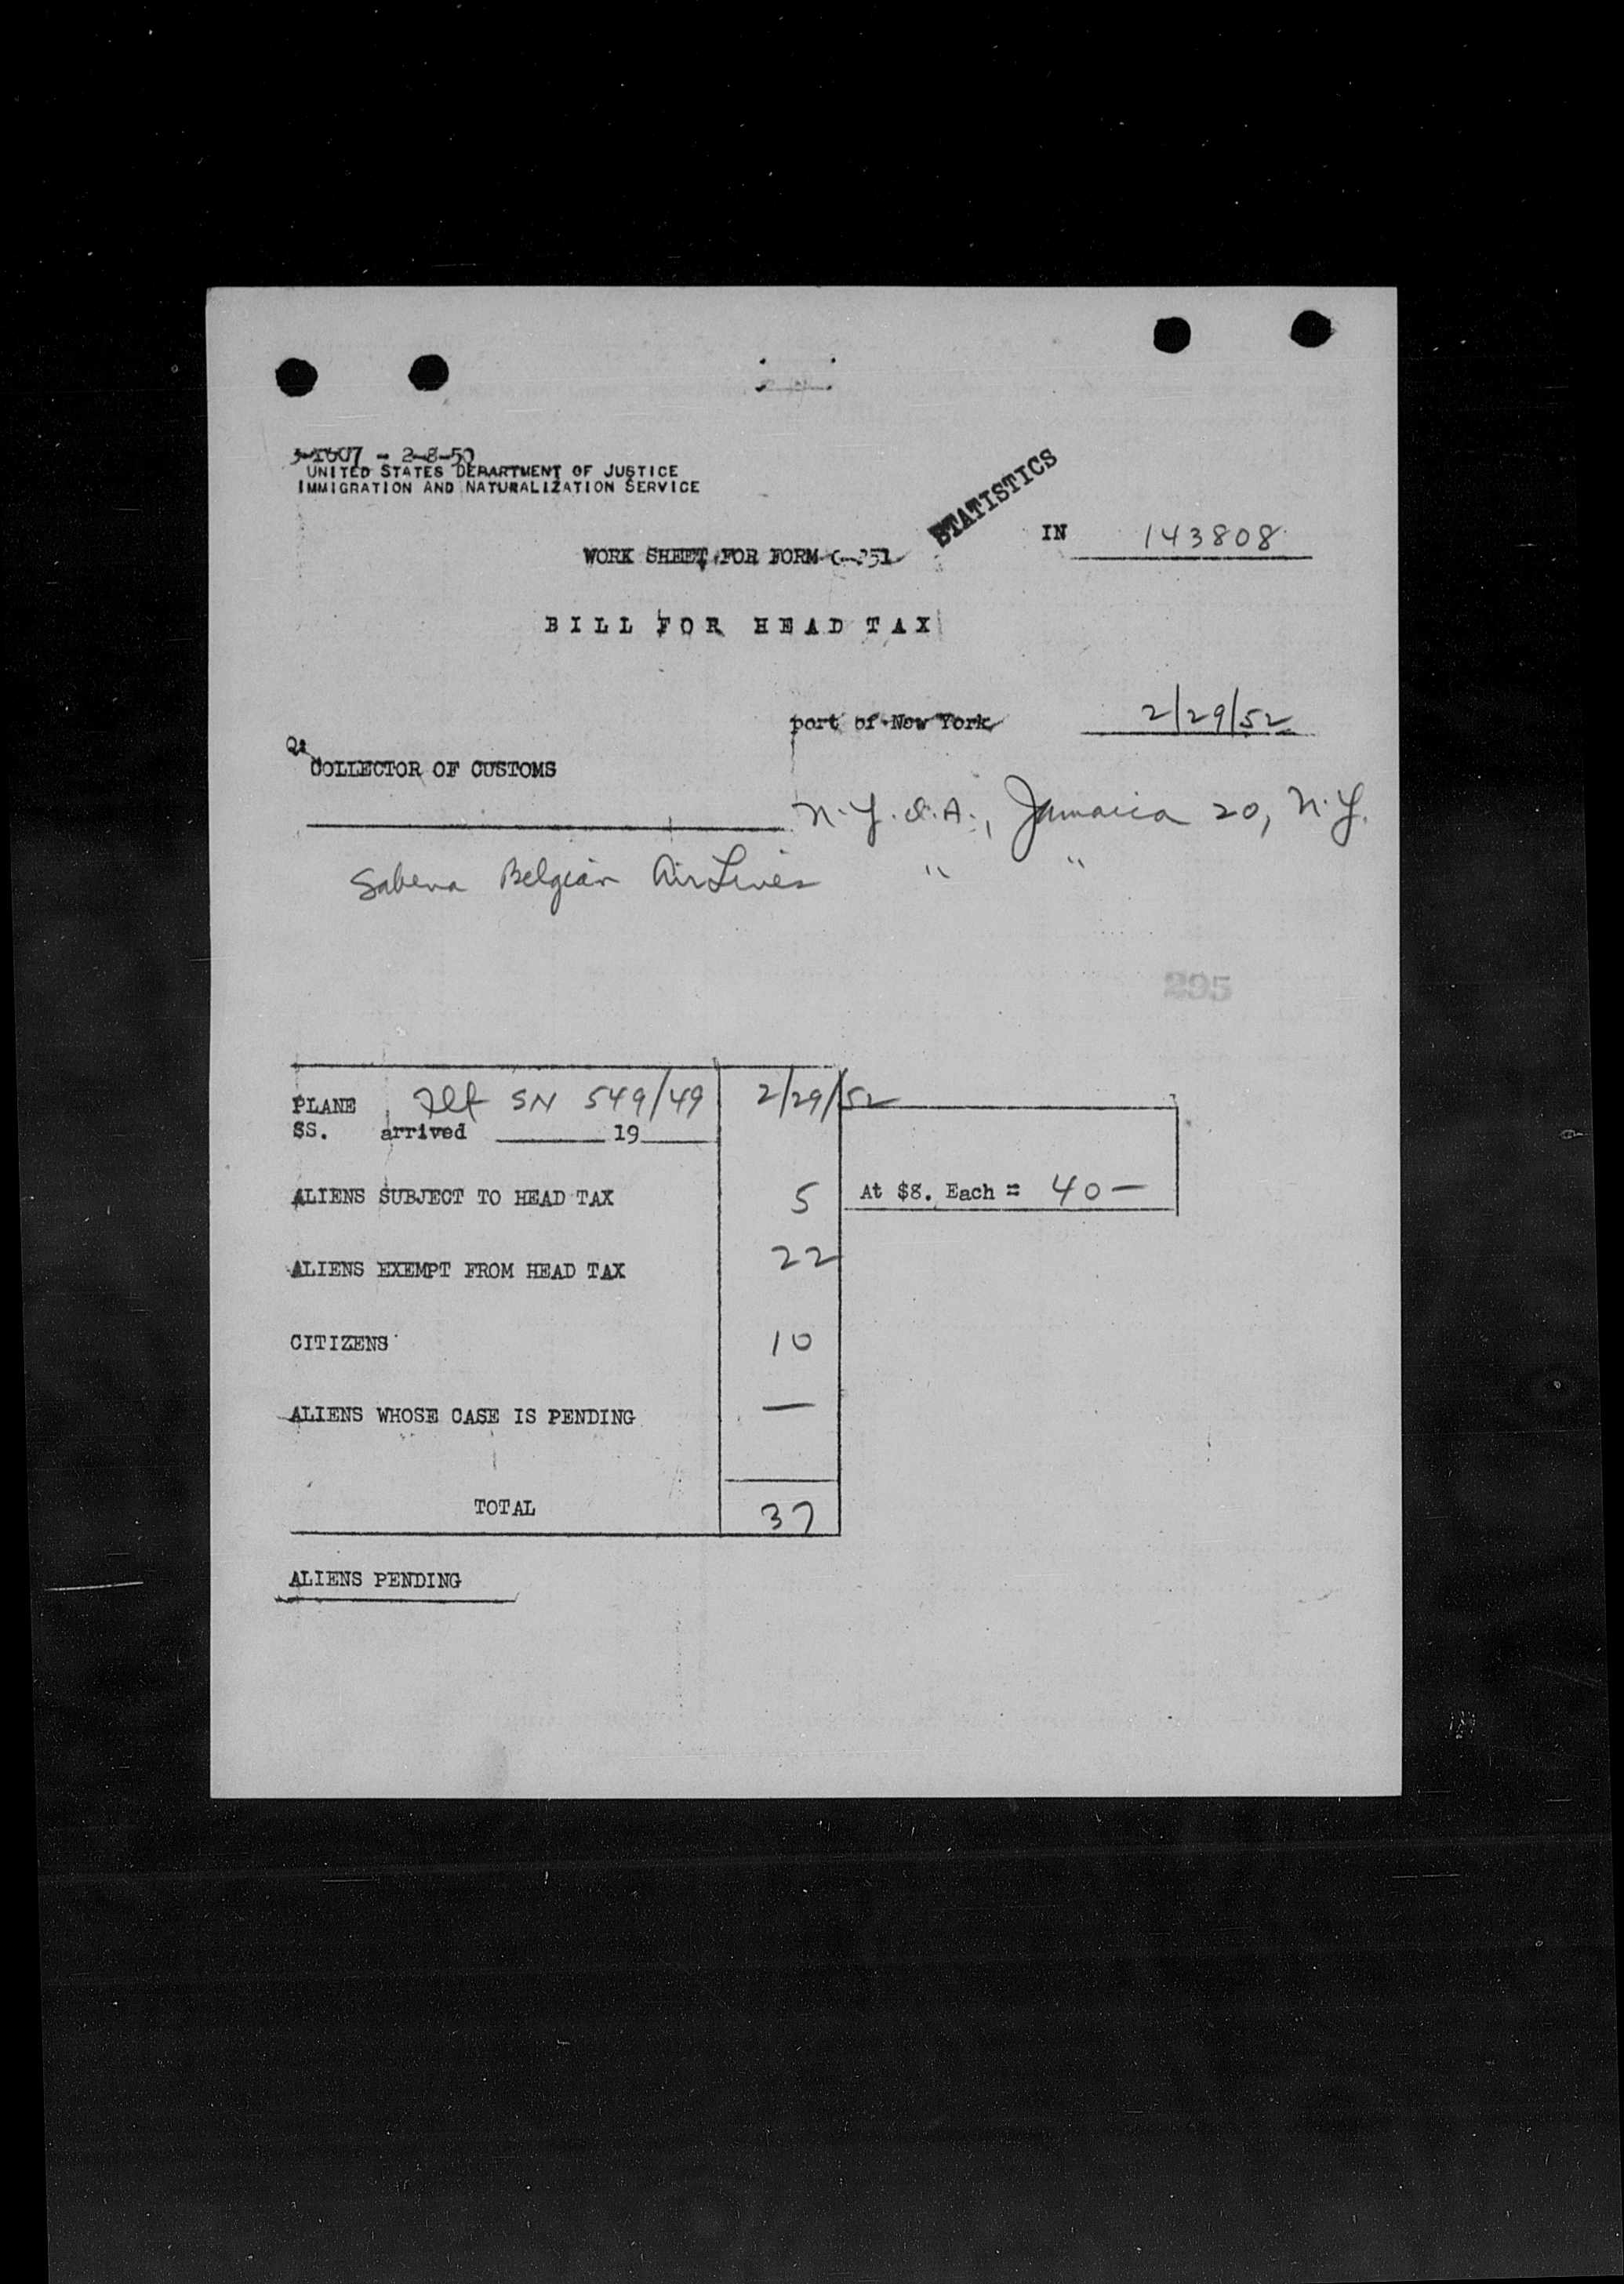 - 2-8-50
UNITED STATES DEPARTMENT OF JUSTICE
IMMIGRATION AND NATURALIZATION SERVICE
STATISTICS
IN 143808
WORK SHEET FOR FORM
BILL FOR HEAD TAX
port of New York 2/29/52
COLLECTOR OF CUSTOMS
N.Y.I.A., Jamaica 20, N.Y.
Sabena Belgian AirLines " "
295
PLANE Flt SN 549/49 2/29/52
SS. arrived 19
ALIENS SUBJECT TO HEAD TAX 5 At $8. Each = 40 —
ALIENS EXEMPT FROM HEAD TAX 22
CITIZENS 10
ALIENS WHOSE CASE IS PENDING —
TOTAL 37
ALIENS PENDING